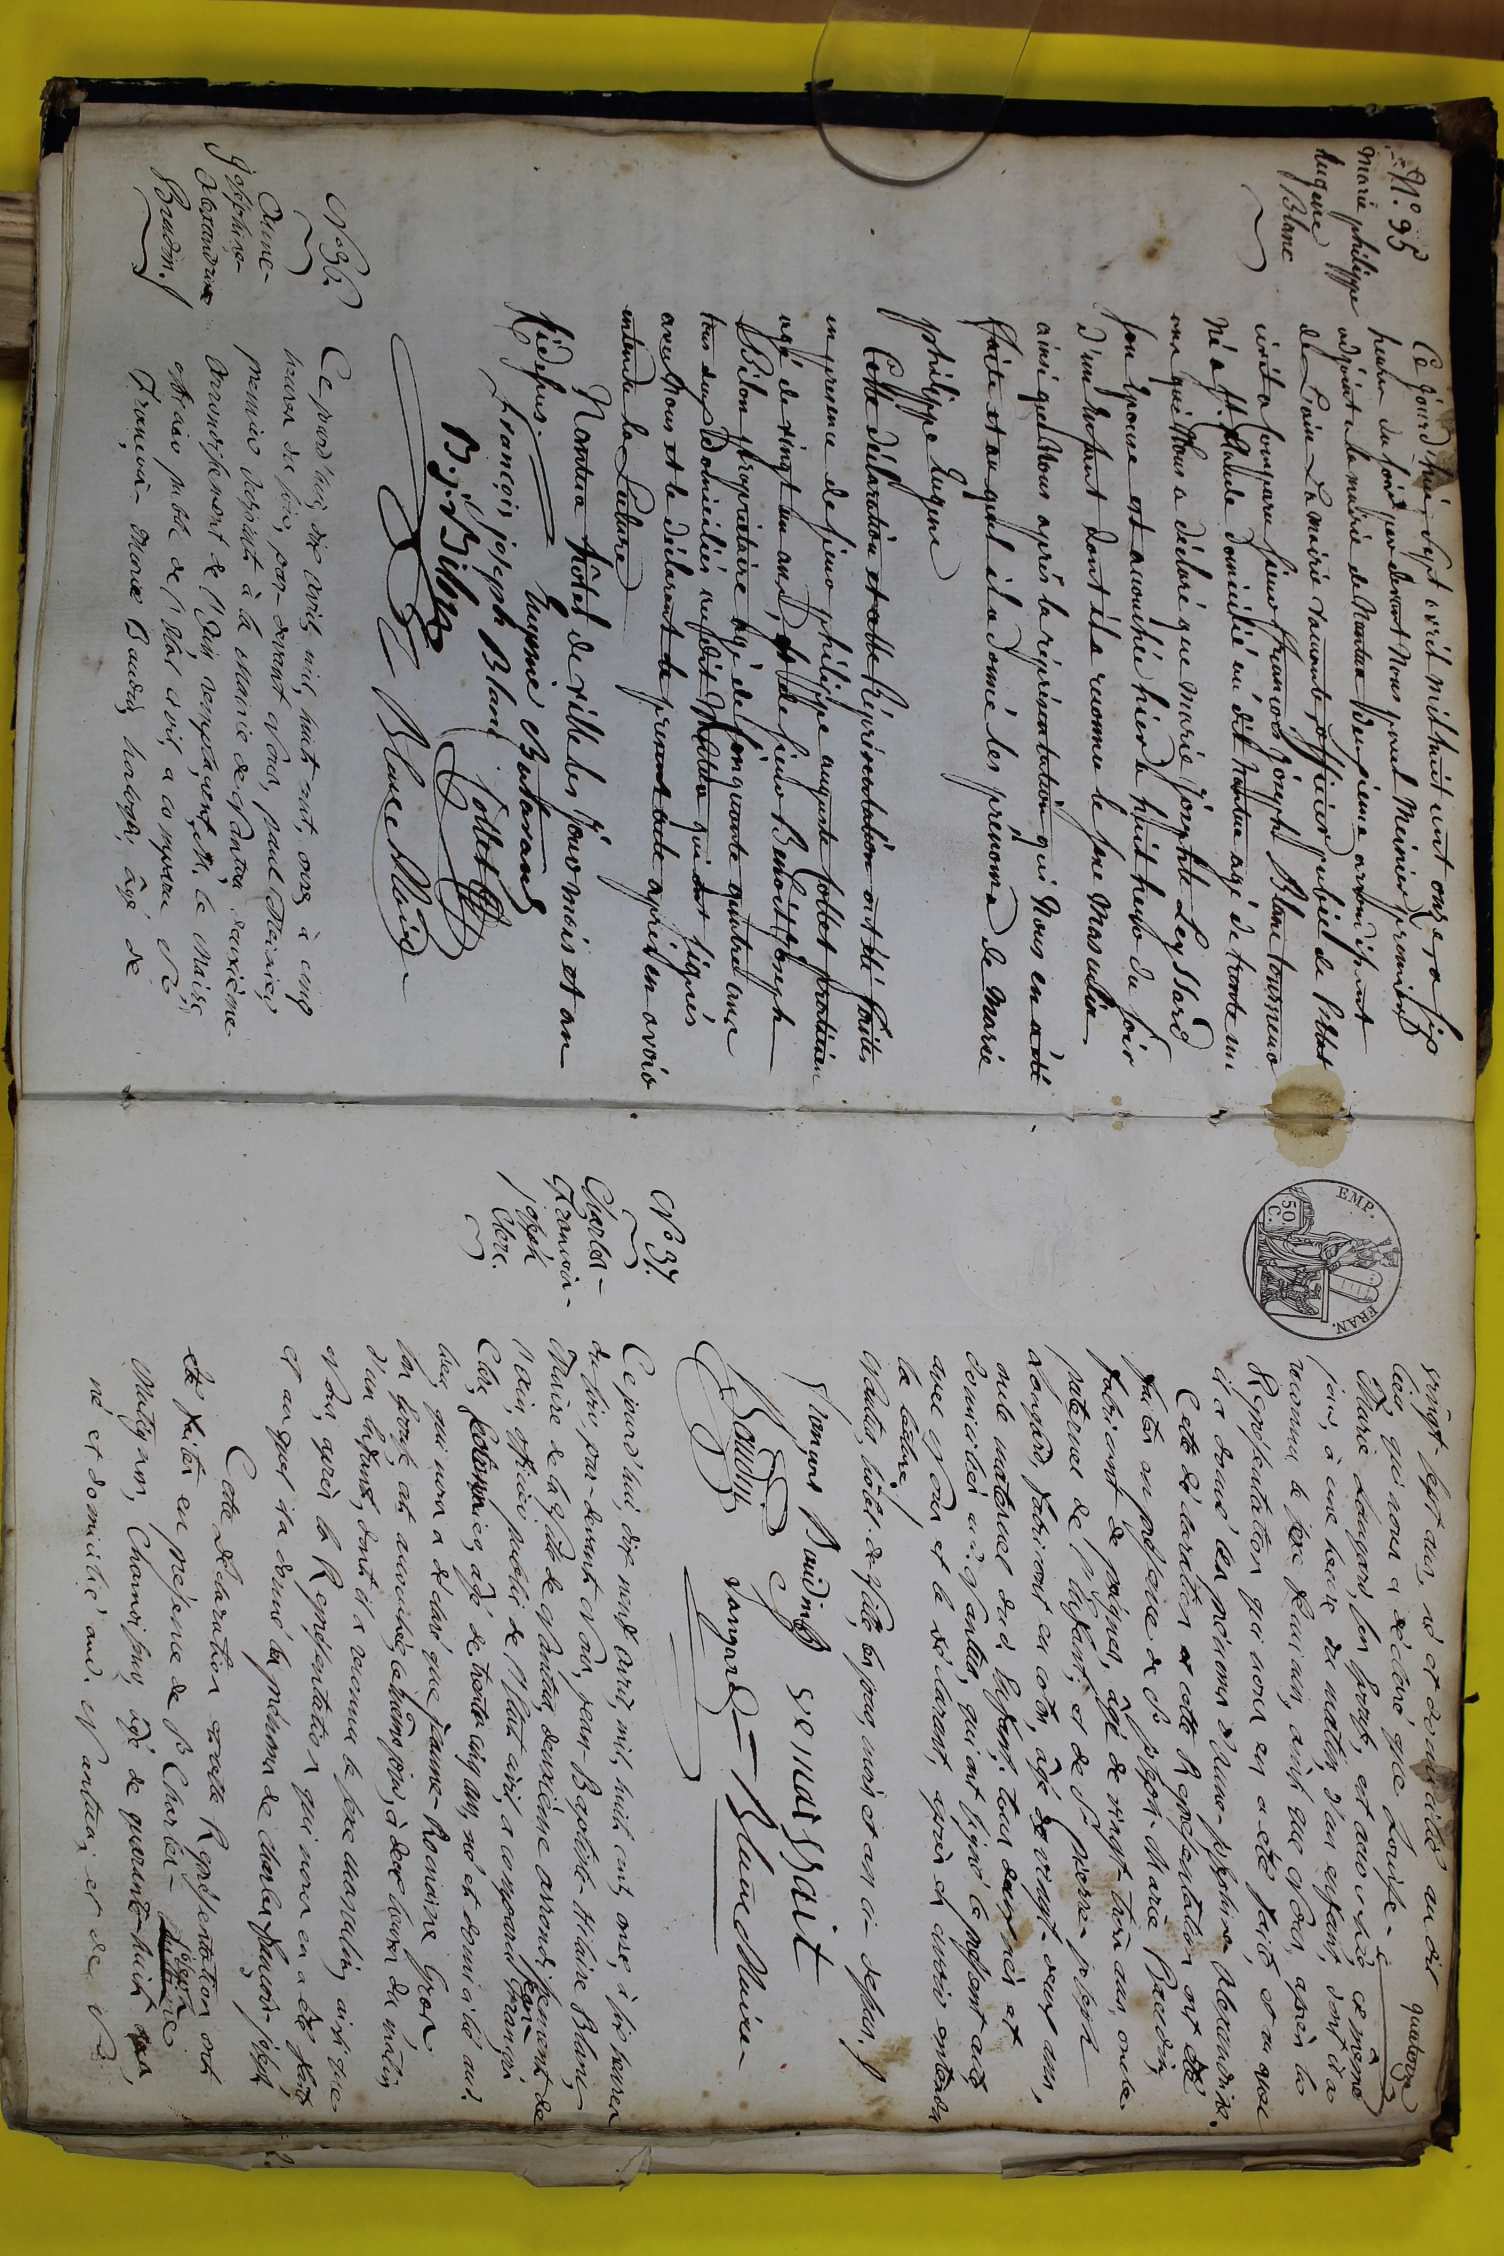 N.° 95
Marie philippe
Eugene
Blanc
Ce jourd'hui sept avril mil huit cent onze, a six
heures du soir par devant Nous paul Meinier premier
adjoint a la mairie de Nantua deuxieme arrondissement
de L'ain La mairie vacante, officier public de l'état
civil a comparu sieur françois Joseph Blanc tourneur
né a domicilié au dit Nantua agé de trente un
ans qui Nous a déclaré que marie josephte Leyssard
son Epouse est accouchée hier a huit heures du soir
d'un Enfant dont il a reconnu le sexe Masculin
ainsi que Nous après la réprésentation qui Nous en a été
faite et au quel il a donné les prénoms de Marie
philippe Eugene
Cette déclaration et cette Réprésentation ont été faites
en présence de sieur philippe auguste Collet praticien
agé de vingt un ans, et de sieur Benoit Joseph
Bilon propriétaire agé de Cinquante quatre ans
tous deux Domiciliés au dit Nantua qui ont signés
avec Nous et le déclarant le present acte après en avoir
entendu la Lecture
Nantua hôtel de ville les jour mois et an
susdits.
françois joseph Blanc Collet
B. J. Bilon
Blanc Maire
N° 96.
Anne-
Joséphine
Alexandrine
Baudin.
Ce jourd'hui dix avril, mil, huit cent, onze, à cinq
heures du soir, par-devant Nous, paul Meinier,
premier adjoint à la Mairie de Nantua, deuxième
arrondissement de l'Ain, remplaçant M. le Maire,
officier public de l'état civil, a comparu Sr.
François-Marie Baudin, horloger, âgé de
EMP. FRAN.
50. C.
quatorze
vingt-sept ans, né et domicilié au dit
lieu, qui nous a déclaré que Louise-
Marie Longard, son Epouse, est accouchée, ce même
jour, à une heure du matin, d'un enfant, dont il a
reconnu le sexe féminin, ainsi que Nous, après la
Représentation qui nous en a été faite, et au quel
il a donné les prénoms d'Anne-joséphine-Alexandrine.
Cette déclaration et cette Représentation ont été
faites en présence de Sr. joseph-Marie Baudin,
fabricant de peignes, âgé de vingt-trois ans, oncle
paternel de l'Enfant; et de Sr. pierre-joseph
Longard, fabricant en coton, âgé de vingt-deux ans,
oncle maternel dud. Enfant, tous deux nés et
domiciliés aud. Nantua, qui ont signé le présent acte
avec Nous et le déclarant, après en avoir entendu
la lecture.
Nantua, hôtel-de-Ville, les jour, mois et an ci-dessus.
Baudin
Blanc Maire
N° 97.
Charles-
François-
joseph
Clerc.
Ce jourd'hui, dix-neuf avril, mil, huit cent, onze, à six heures
du soir, par-devant Nous, jean-Baptiste-Hilaire Blanc,
Maire de la Ville de Nantua, deuxième arrondissement de
l'Ain, officier public de l'état civil, a comparu jean-françois
Clerc, âgé de trente cinq ans, né et domicilié aud.
lieu, qui nous a déclaré que jeanne-Romaine Gros
son Epouse, est accouchée ce même jour, à deux heures du matin
d'un Enfant, dont il a reconnu le sexe masculin, ainsi que
Nous, après la Représentation qui nous en a été faite,
et au quel il a donné les prénoms de Charles-françois-joseph
Cette déclaration et cette Représentation ont
été faites en présence de Sr. Charles-joseph
âgé de quarante-huit ans,
né et domicilié aud. Nantua; et de Sr.